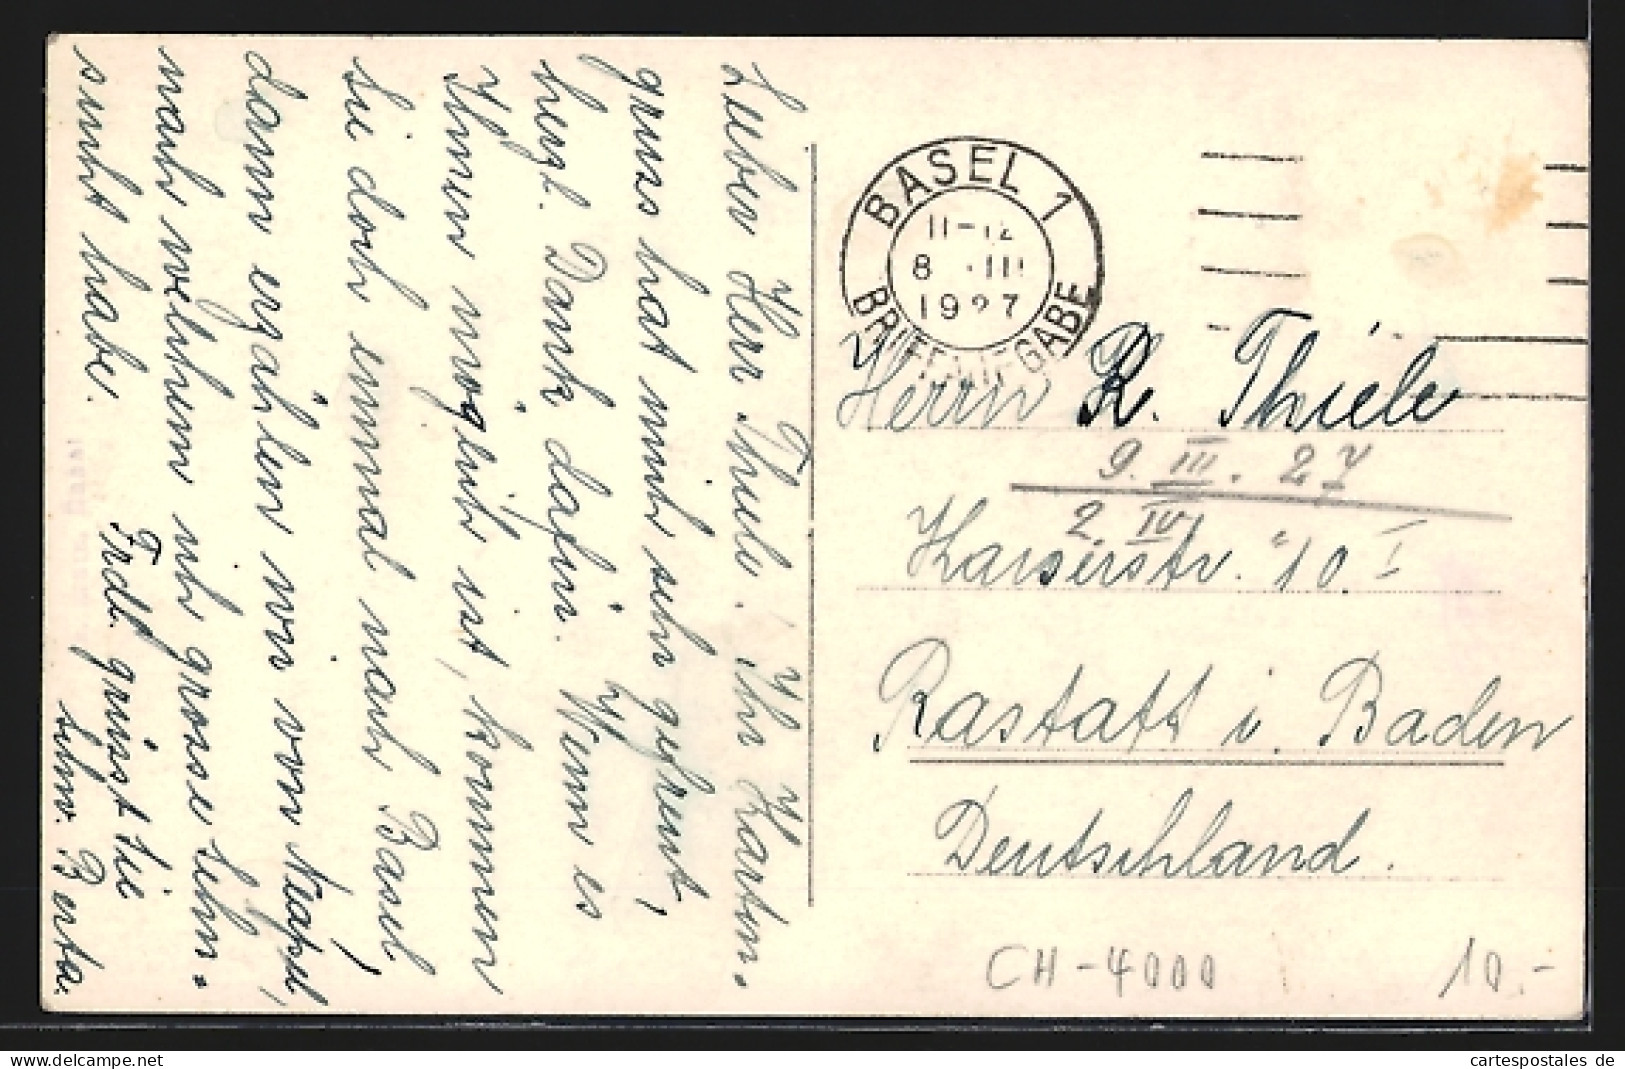 Lieber Herr Thiele! Ihr Karten-
gruss hat mich sehr gefreut,
herzl. Dank dafür. Wenn es
Ihnen möglich ist, kommen
Sie doch einmal nach Basel,
dann erzählen wir von Kassel,
nach welchem ich grosse Sehn-
sucht habe.
Frdl. grüsst Sie
Schw. Berta.
BASEL 1
11-12
8 III
1927
BRIEFAUFGABE
Herrn R. Thiele
9. III. 27
2. IV
Kaiserstr. 10 I
Rastatt i. Baden
Deutschland.
CH-4000
10.-
cartespostales de